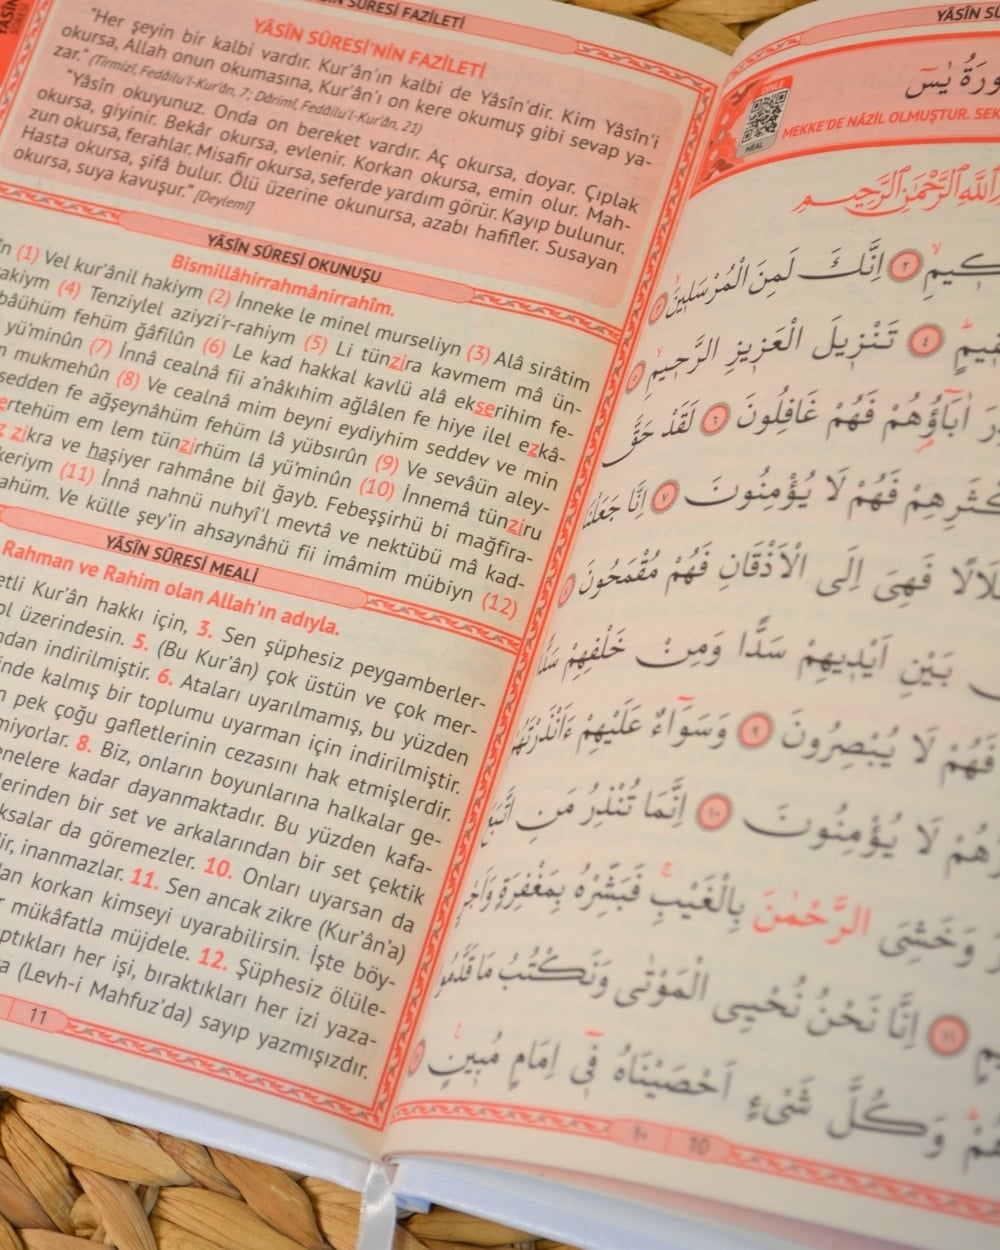 YÂSÎN SÛRESİ
YÂSÎN SÛRESİ FAZİLETİ
YÂSÎN SÛRESİ'NİN FAZİLETİ
"Her şeyin bir kalbi vardır. Kur'ân'ın kalbi de Yâsîn'dir. Kim Yâsîn'i
okursa, Allah onun okumasına, Kur'ân'ı on kere okumuş gibi sevap ya-
zar." (Tirmizî, Fedâilu'l-Kur'ân, 7; Dârimî, Fedâilu'l-Kur'ân, 21)
"Yâsîn okuyunuz. Onda on bereket vardır. Aç okursa, doyar. Çıplak
okursa, giyinir. Bekâr okursa, evlenir. Korkan okursa, emin olur. Mah-
zun okursa, ferahlar. Misafir okursa, seferde yardım görür. Kayıp bulunur.
Hasta okursa, şifâ bulur. Ölü üzerine okunursa, azabı hafifler. Susayan
okursa, suya kavuşur." [Deylemî]
YÂSÎN SÛRESİ OKUNUŞU
Bismillâhirrahmânirrahîm.
(1) Vel kur'ânil hakiym (2) İnneke le minel murseliyn (3) Alâ sirâtim
(4) Tenziylel aziyzi'r-rahiym (5) Li tünzira kavmem mâ ün-
fehüm ğâfilûn (6) Le kad hakkal kavlü alâ ekserihim fe-
yü'minûn (7) İnnâ cealnâ fii a'nâkıhim ağlâlen fe hiye ilel ezkâ-
mukmehûn (8) Ve cealnâ mim beyni eydiyhim seddev ve min
sedden fe ağşeynâhüm fehüm lâ yübsırûn (9) Ve sevâün aley-
em lem tünzirhüm lâ yü'minûn (10) İnnemâ tünziru
zikra ve haşiyer rahmâne bil ğayb. Febeşşirhü bi mağfira-
keriym (11) İnnâ nahnü nuhyi'l mevtâ ve nektübü mâ kad-
Ve külle şey'in ahsaynâhü fii imâmim mübiyn (12)
YÂSÎN SÛRESİ MEALİ
Rahman ve Rahim olan Allah'ın adıyla.
Kur'ân hakkı için, 3. Sen şüphesiz peygamberler-
üzerindesin. 5. (Bu Kur'ân) çok üstün ve çok mer-
indirilmiştir. 6. Ataları uyarılmamış, bu yüzden
kalmış bir toplumu uyarman için indirilmiştir.
pek çoğu gafletlerinin cezasını hak etmişlerdir.
8. Biz, onların boyunlarına halkalar ge-
kadar dayanmaktadır. Bu yüzden kafa-
bir set ve arkalarından bir set çektik
da göremezler. 10. Onları uyarsan da
inanmazlar. 11. Sen ancak zikre (Kur'ân'a)
korkan kimseyi uyarabilirsin. İşte böy-
mükâfatla müjdele. 12. Şüphesiz ölüle-
her işi, bıraktıkları her izi yaza-
(Levh-i Mahfuz'da) sayıp yazmışızdır.
11
YÂSÎN
سُورَةُ يٰسٓ
DİNLE
MEAL
MEKKE'DE NÂZİL OLMUŞTUR.
اللّٰهِ الرَّحْمٰنِ الرَّحِيمِ
٢ اِنَّكَ لَمِنَ الْمُرْسَلِينَ ٣
٤ تَنْزِيلَ الْعَزِيزِ الرَّحِيمِ ٥
اٰبَٓاؤُهُمْ فَهُمْ غَافِلُونَ ٦ لَقَدْ حَقَّ
فَهُمْ لَا يُؤْمِنُونَ ٧ اِنَّا جَعَلْنَا
فَهِيَ اِلَى الْاَذْقَانِ فَهُمْ مُقْمَحُونَ ٨
بَيْنِ اَيْدِيهِمْ سَدًّا وَمِنْ خَلْفِهِمْ سَدًّا
فَهُمْ لَا يُبْصِرُونَ ٩ وَسَوَٓاءٌ عَلَيْهِمْ ءَاَنْذَرْتَهُمْ
لَا يُؤْمِنُونَ ١٠ اِنَّمَا تُنْذِرُ مَنِ اتَّبَعَ
وَخَشِيَ الرَّحْمٰنَ بِالْغَيْبِ فَبَشِّرْهُ بِمَغْفِرَةٍ وَاَجْرٍ
١١ اِنَّا نَحْنُ نُحْيِي الْمَوْتٰى وَنَكْتُبُ مَا قَدَّمُوا
وَكُلَّ شَيْءٍ اَحْصَيْنَاهُ فِٓي اِمَامٍ مُبِينٍ ١٢
١٠ 10